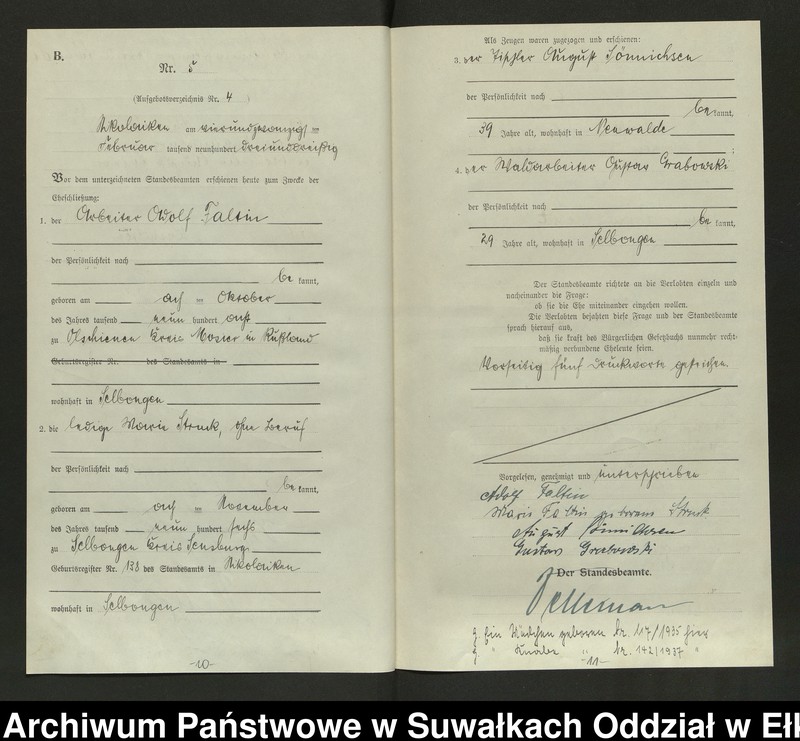 B.
Nr. 5
(Aufgebotsverzeichnis Nr. 4)
Nikolaiken am vierundzwanzigsten
Februar tausend neunhundert dreiunddreißig
Vor dem unterzeichneten Standesbeamten erschienen heute zum Zwecke der
Eheschließung:
1. der Arbeiter Adolf Faltin
der Persönlichkeit nach
be kannt,
geboren am acht ten Oktober
des Jahres tausend neun hundert acht
zu Olschienen Kreis Mosier in Rußland
Geburtsregister Nr. des Standesamts in
wohnhaft in Selbongen
2. die ledige Marie Struck, ohne Beruf
der Persönlichkeit nach
be kannt,
geboren am acht ten November
des Jahres tausend neun hundert sechs
zu Selbongen Kreis Sensburg
Geburtsregister Nr. 138 des Standesamts in Nikolaiken
wohnhaft in Selbongen
-10-
Als Zeugen waren zugezogen und erschienen:
3. der Tischler August Sönnichsen
der Persönlichkeit nach
be kannt,
39 Jahre alt, wohnhaft in Neuwalde
;
4. der Waldarbeiter Gustav Grabowski
der Persönlichkeit nach
be kannt,
29 Jahre alt, wohnhaft in Selbongen
Der Standesbeamte richtete an die Verlobten einzeln und
nacheinander die Frage:
ob sie die Ehe miteinander eingehen wollen.
Die Verlobten bejahten diese Frage und der Standesbeamte
sprach hierauf aus,
daß sie kraft des Bürgerlichen Gesetzbuchs nunmehr recht-
mäßig verbundene Eheleute seien.
Vorseitig fünf Druckworte gestrichen.
Vorgelesen, genehmigt und unterschrieben
Adolf Faltin
Marie Faltin geborene Struck
August Sönnichsen
Gustav Grabowski
Der Standesbeamte.
g. Ein Mädchen geboren Nr. 117/1935 hier
g. " Knabe " Nr. 142/1937 "
-11-
Archiwum Państwowe w Suwałkach Oddział w Ełk